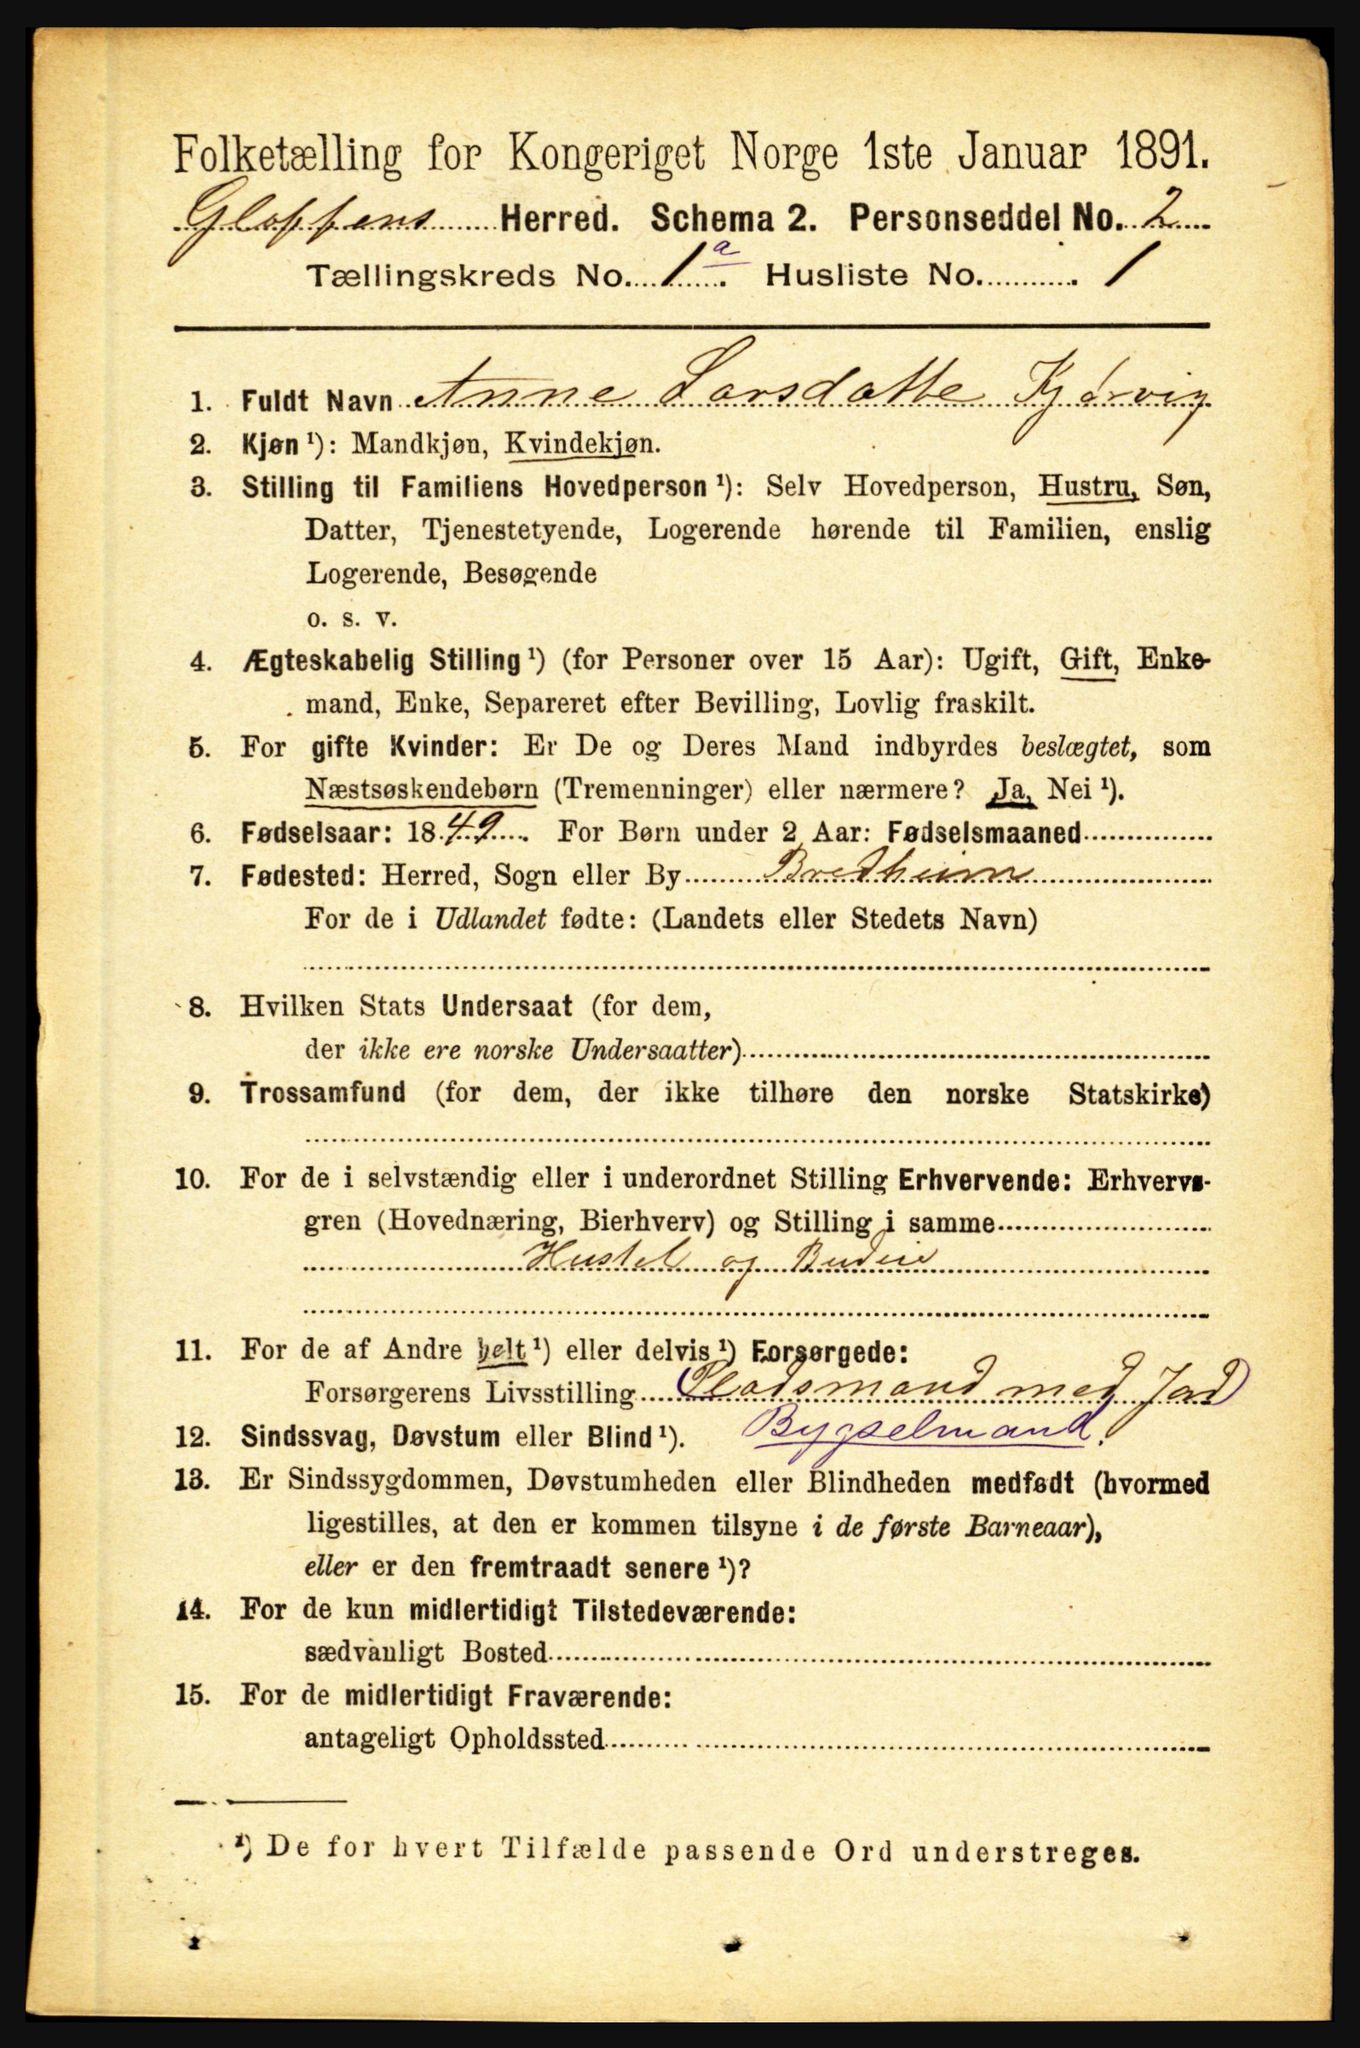 Folketælling for Kongeriget Norge 1ste Januar 1891.
Gloppens Herred. Schema 2. Personseddel No. 2
Tællingskreds No. 1a. Husliste No. 1
1. Fuldt Navn Anne Larsdatte Kjørvig
2. Kjøn ¹): Mandkjøn, Kvindekjøn.
3. Stilling til Familiens Hovedperson ¹): Selv Hovedperson, Hustru, Søn,
Datter, Tjenestetyende, Logerende hørende til Familien, enslig
Logerende, Besøgende
o. s. v.
4. Ægteskabelig Stilling ¹) (for Personer over 15 Aar): Ugift, Gift, Enke-
mand, Enke, Separeret efter Bevilling, Lovlig fraskilt.
5. For gifte Kvinder: Er De og Deres Mand indbyrdes beslægtet, som
Næstsøskendebørn (Tremenninger) eller nærmere? Ja, Nei ¹).
6. Fødselsaar: 1849. For Børn under 2 Aar: Fødselsmaaned
7. Fødested: Herred, Sogn eller By Bredheim
For de i Udlandet fødte: (Landets eller Stedets Navn)
8. Hvilken Stats Undersaat (for dem,
der ikke ere norske Undersaatter)
9. Trossamfund (for dem, der ikke tilhøre den norske Statskirke)
10. For de i selvstændig eller i underordnet Stilling Erhvervende: Erhvervs-
gren (Hovednæring, Bierhverv) og Stilling i samme
Hustel og Budeie
11. For de af Andre helt ¹) eller delvis ¹) Forsørgede:
Forsørgerens Livsstilling Pladsmand med Jord
12. Sindssvag, Døvstum eller Blind ¹). Bygselmand.
13. Er Sindssygdommen, Døvstumheden eller Blindheden medfødt (hvormed
ligestilles, at den er kommen tilsyne i de første Barneaar),
eller er den fremtraadt senere ¹)?
14. For de kun midlertidigt Tilstedeværende:
sædvanligt Bosted
15. For de midlertidigt Fraværende:
antageligt Opholdssted
¹) De for hvert Tilfælde passende Ord understreges.